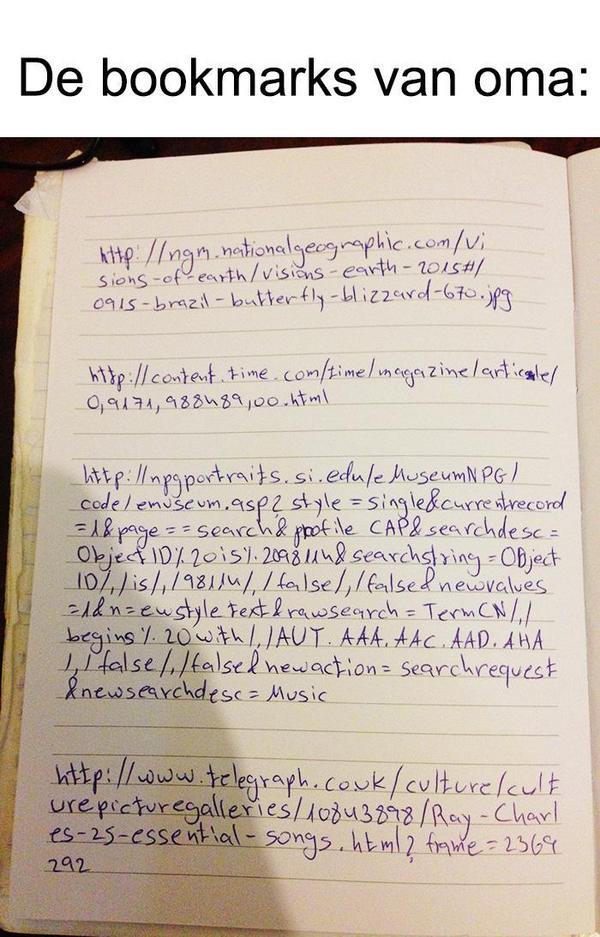 De bookmarks van oma:
http://ngm.nationalgeographic.com/vi
sions-of-earth/visions-earth-2015#/
0915-brazil-butterfly-blizzard-670.jpg
http://content.time.com/time/magazine/article/
0,9171,988489,00.html
http://npgportraits.si.edu/eMuseumNPG/
code/emuseum.asp?style=single&currentrecord
=1&page==search&profile CAP&searchdesc=
Object ID%20is%209811u&searchstring=Object
ID/,/is/,/9811u/,/false/,/false&newvalues
=1&n=ewstyle text&rawsearch=TermCN/,/
begins%20with/,/AUT.AAA.AAC.AAD.AHA
/,/false/,/false&newaction=searchrequest
&newsearchdesc=Music
http://www.telegraph.co.uk/culture/cult
urepicturegalleries/10843898/Ray-Charl
es-25-essential-songs.html?frame=2369
292